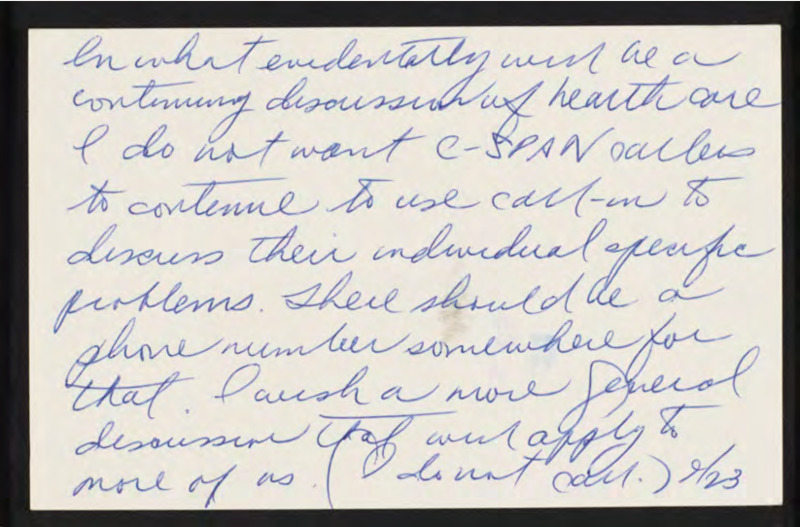 In what evidentally will be a
continuing discussion of health care
I do not want C-SPAN callers
to continue to use call-in to
discuss their individual specific
problems. There should be a
phone number somewhere for
that. I wish a more general
discussion that will apply to
more of us. (I do not call.) 9/23